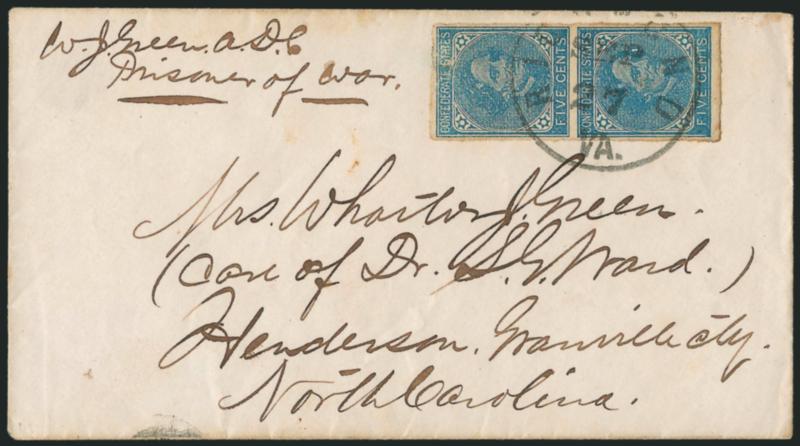 W. J. Green. A. D. C
Prisoner of War.
CONFEDERATE STATES
FIVE CENTS
CONFEDERATE STATES
FIVE CENTS
VA.
Mrs. Wharton J. Green.
(Care of Dr. S. G. Ward.)
Henderson. Granville Cty.
North Carolina.